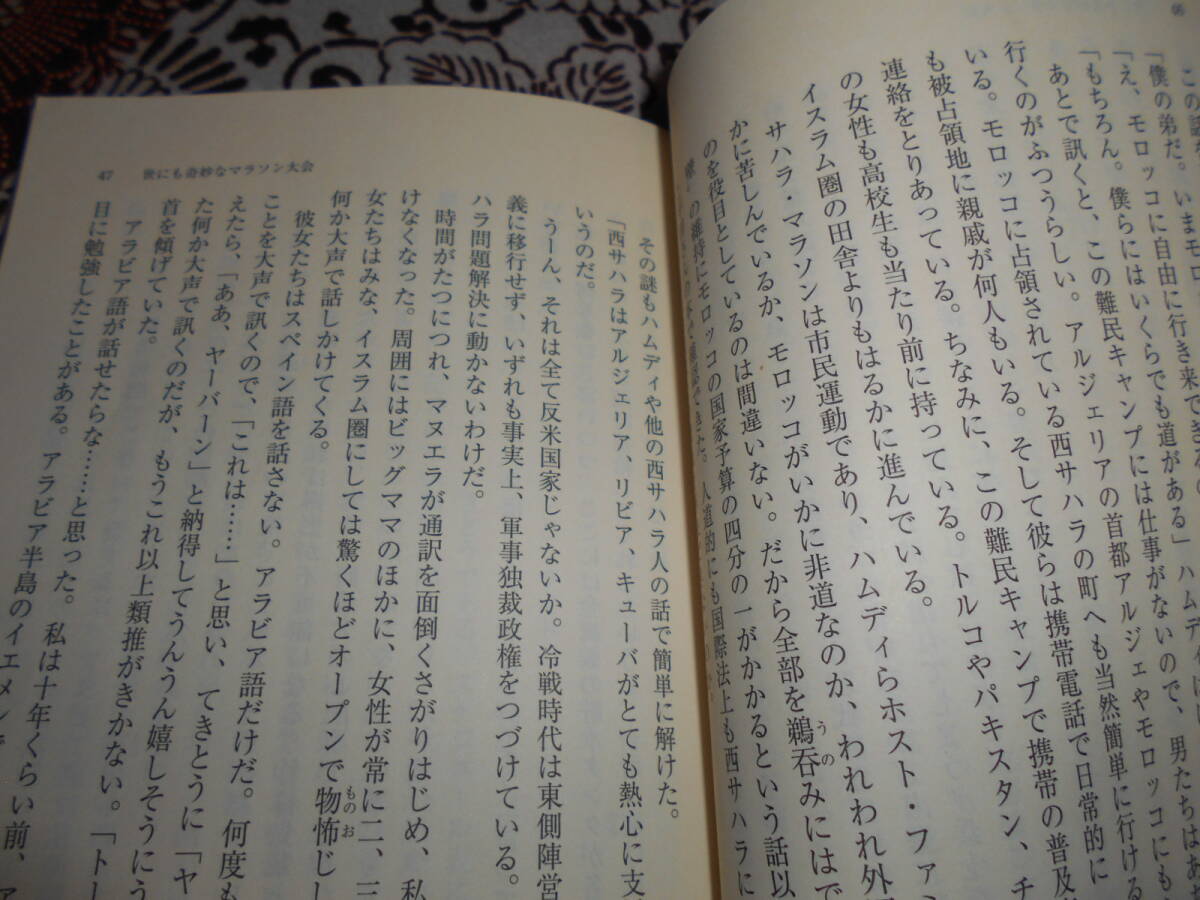 「僕の弟だ。いまモロ
「え、モロッコに自由に行き来できるの
「もちろん。僕らにはいくらでも道がある」ハムディは
あとで訊くと、この難民キャンプには仕事がないので、男たちはあち
行くのがふつうらしい。アルジェリアの首都アルジェやモロッコにも
いる。モロッコに占領されている西サハラの町へも当然簡単に行ける
も被占領地に親戚が何人もいる。そして彼らは携帯電話で日常的に
連絡をとりあっている。ちなみに、この難民キャンプで携帯の普及
の女性も高校生も当たり前に持っている。トルコやパキスタン、チ
イスラム圏の田舎よりもはるかに進んでいる。
サハラ・マラソンは市民運動であり、ハムディらホスト・ファミ
かに苦しんでいるか、モロッコがいかに非道なのか、われわれ外
のを役目としているのは間違いない。だから全部を鵜呑みにはで
の維持にモロッコの国家予算の四分の一がかかるという話以
人道的にも国際法上も西サハラに
47 世にも奇妙なマラソン大会
その謎もハムディや他の西サハラ人の話で簡単に解けた。
「西サハラはアルジェリア、リビア、キューバがとても熱心に支
いうのだ。
うーん、それは全て反米国家じゃないか。冷戦時代は東側陣営
義に移行せず、いずれも事実上、軍事独裁政権をつづけている。
ハラ問題解決に動かないわけだ。
時間がたつにつれ、マヌエラが通訳を面倒くさがりはじめ、私
けなくなった。周囲にはビッグママのほかに、女性が常に二、三
女たちはみな、イスラム圏にしては驚くほどオープンで物怖じし
何か大声で話しかけてくる。
彼女たちはスペイン語を話さない。アラビア語だけだ。何度も
ことを大声で訊くので、「これは……」と思い、てきとうに「ヤ
えたら、「ああ、ヤーバーン」と納得してうんうん嬉しそうにう
た何か大声で訊くのだが、もうこれ以上類推がきかない。「トー
首を傾げていた。
アラビア語が話せたらな……と思った。私は十年くらい前、ア
目に勉強したことがある。アラビア半島のイエメン